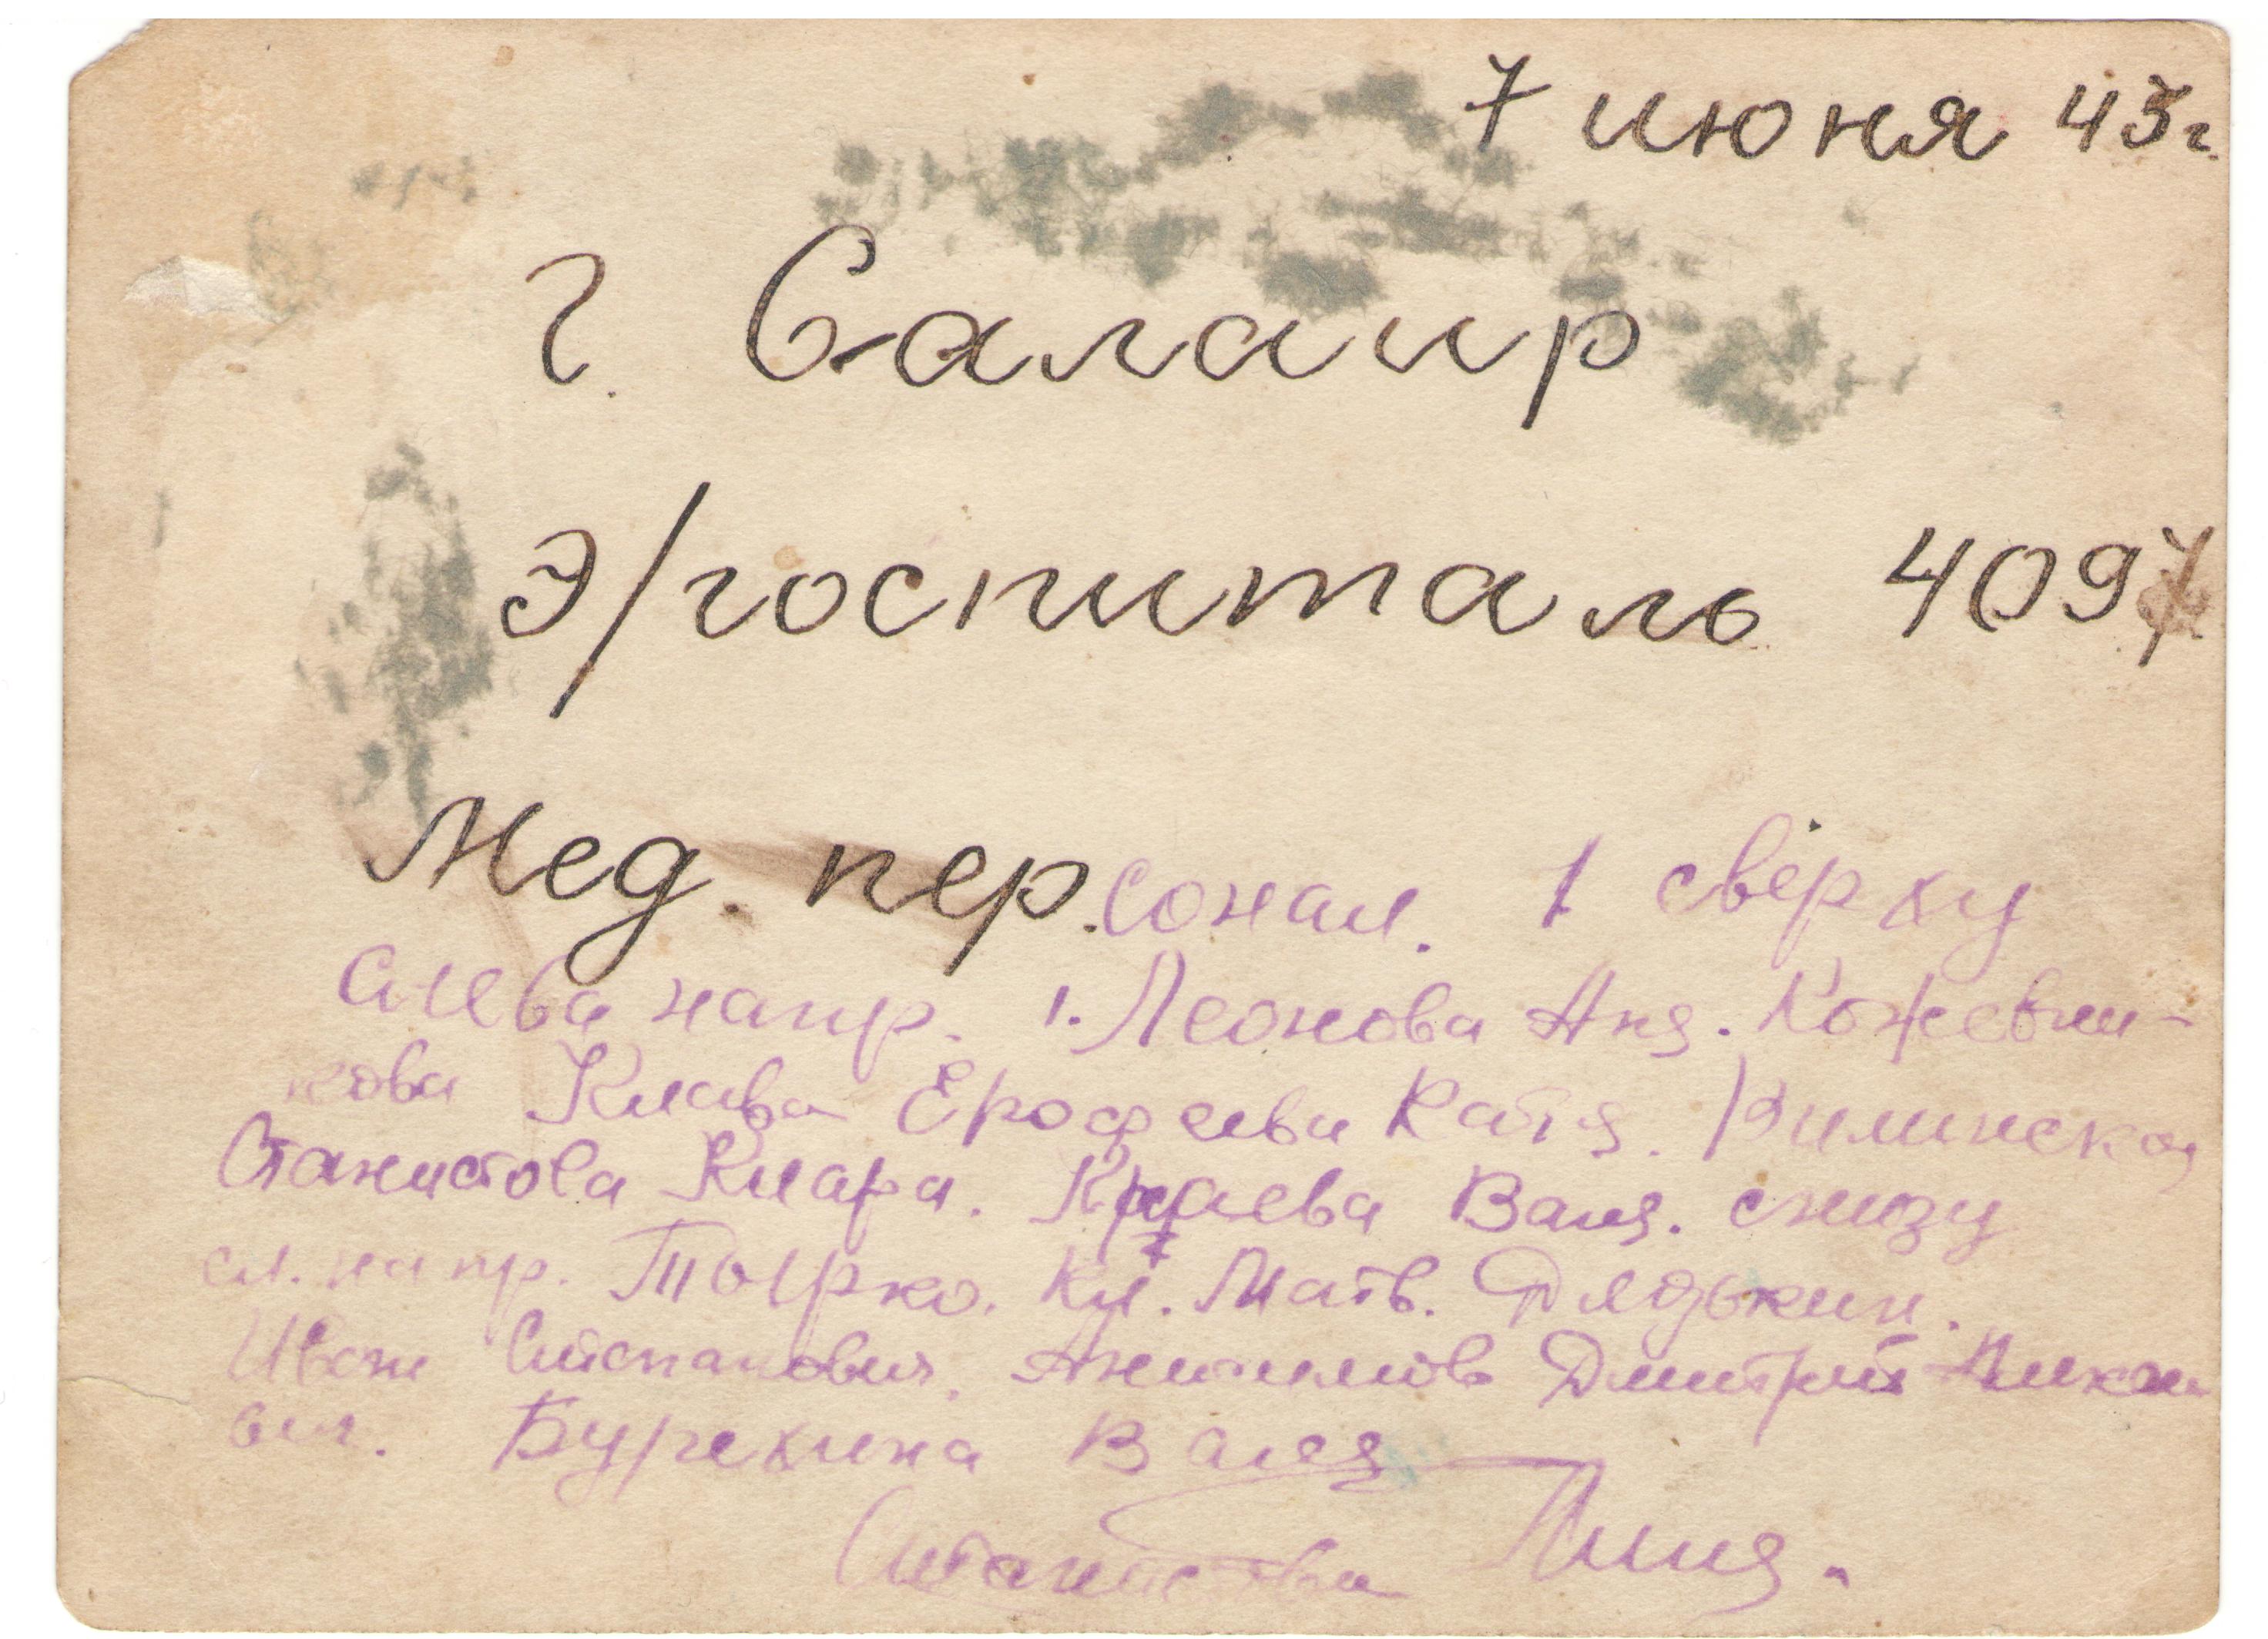 7 июня 43г.
г. Салаир
Э/госпиталь 4097
Мед. пер.сонал. 1 сверху
слева напр. 1. Леонова Аня. Кожевни-
кова Клава Ерофеева Катя.
Станистова Клара. Краева Валя. снизу
сл. напр. Тырко. Кл. Матв. Дядькин.
Иван Степанович. Анисимов Дмитрий
вич. Бурехина Валя
Лиля.